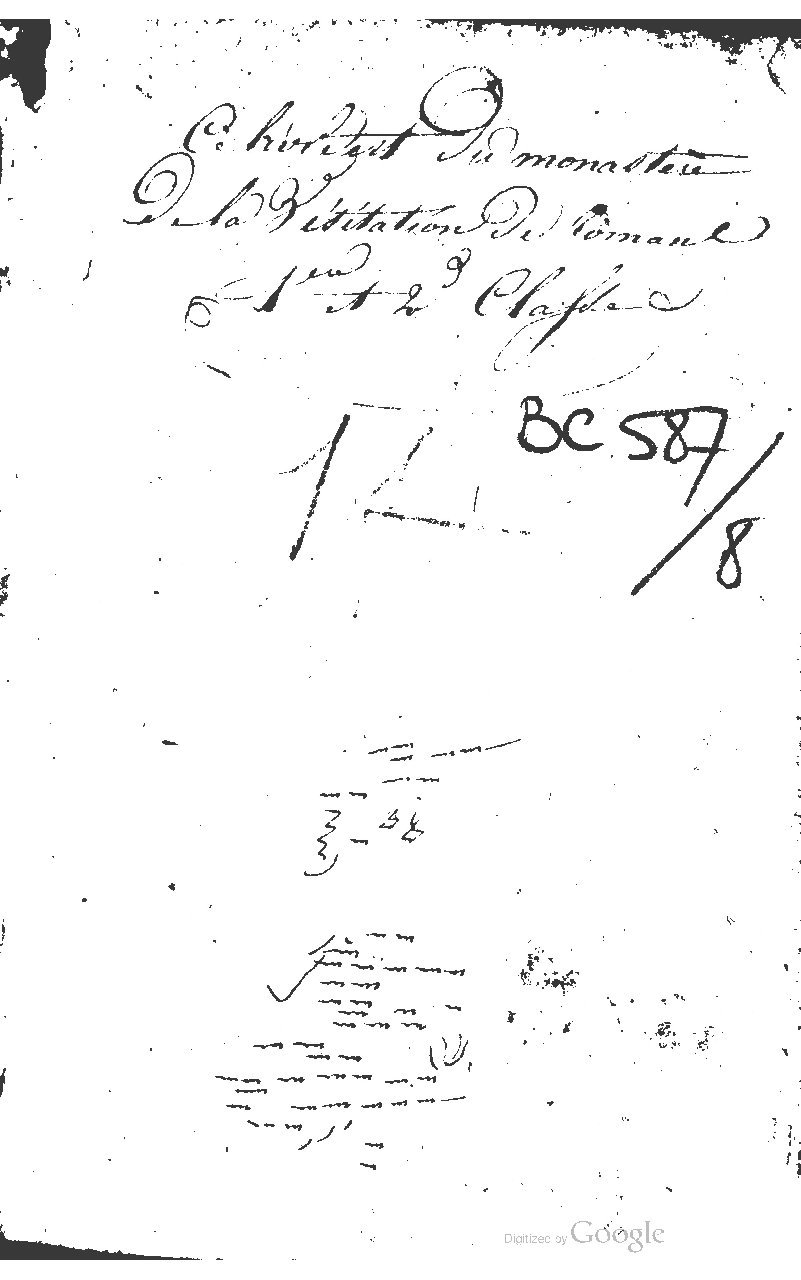 Ce livre est Du monastere
De la Visitation De Romans
1ere et 2e Classe
BC 587
/8
Digitized by Google